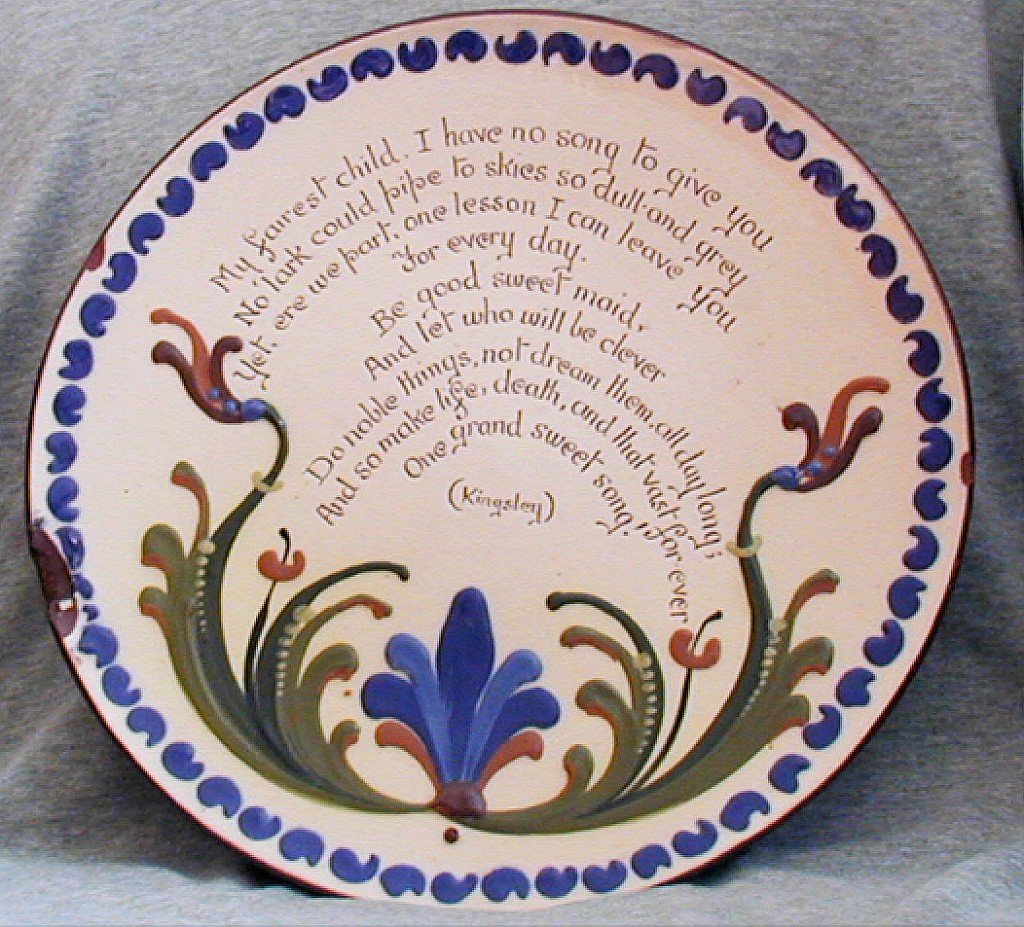 My fairest child. I have no song to give you
No lark could pipe to skies so dull and grey
Yet, ere we part, one lesson I can leave you
For every day.
Be good sweet maid,
And let who will be clever
Do noble things, not dream them, all day long;
And so make life, death, and that vast for ever
One grand sweet song!
(Kingsley)